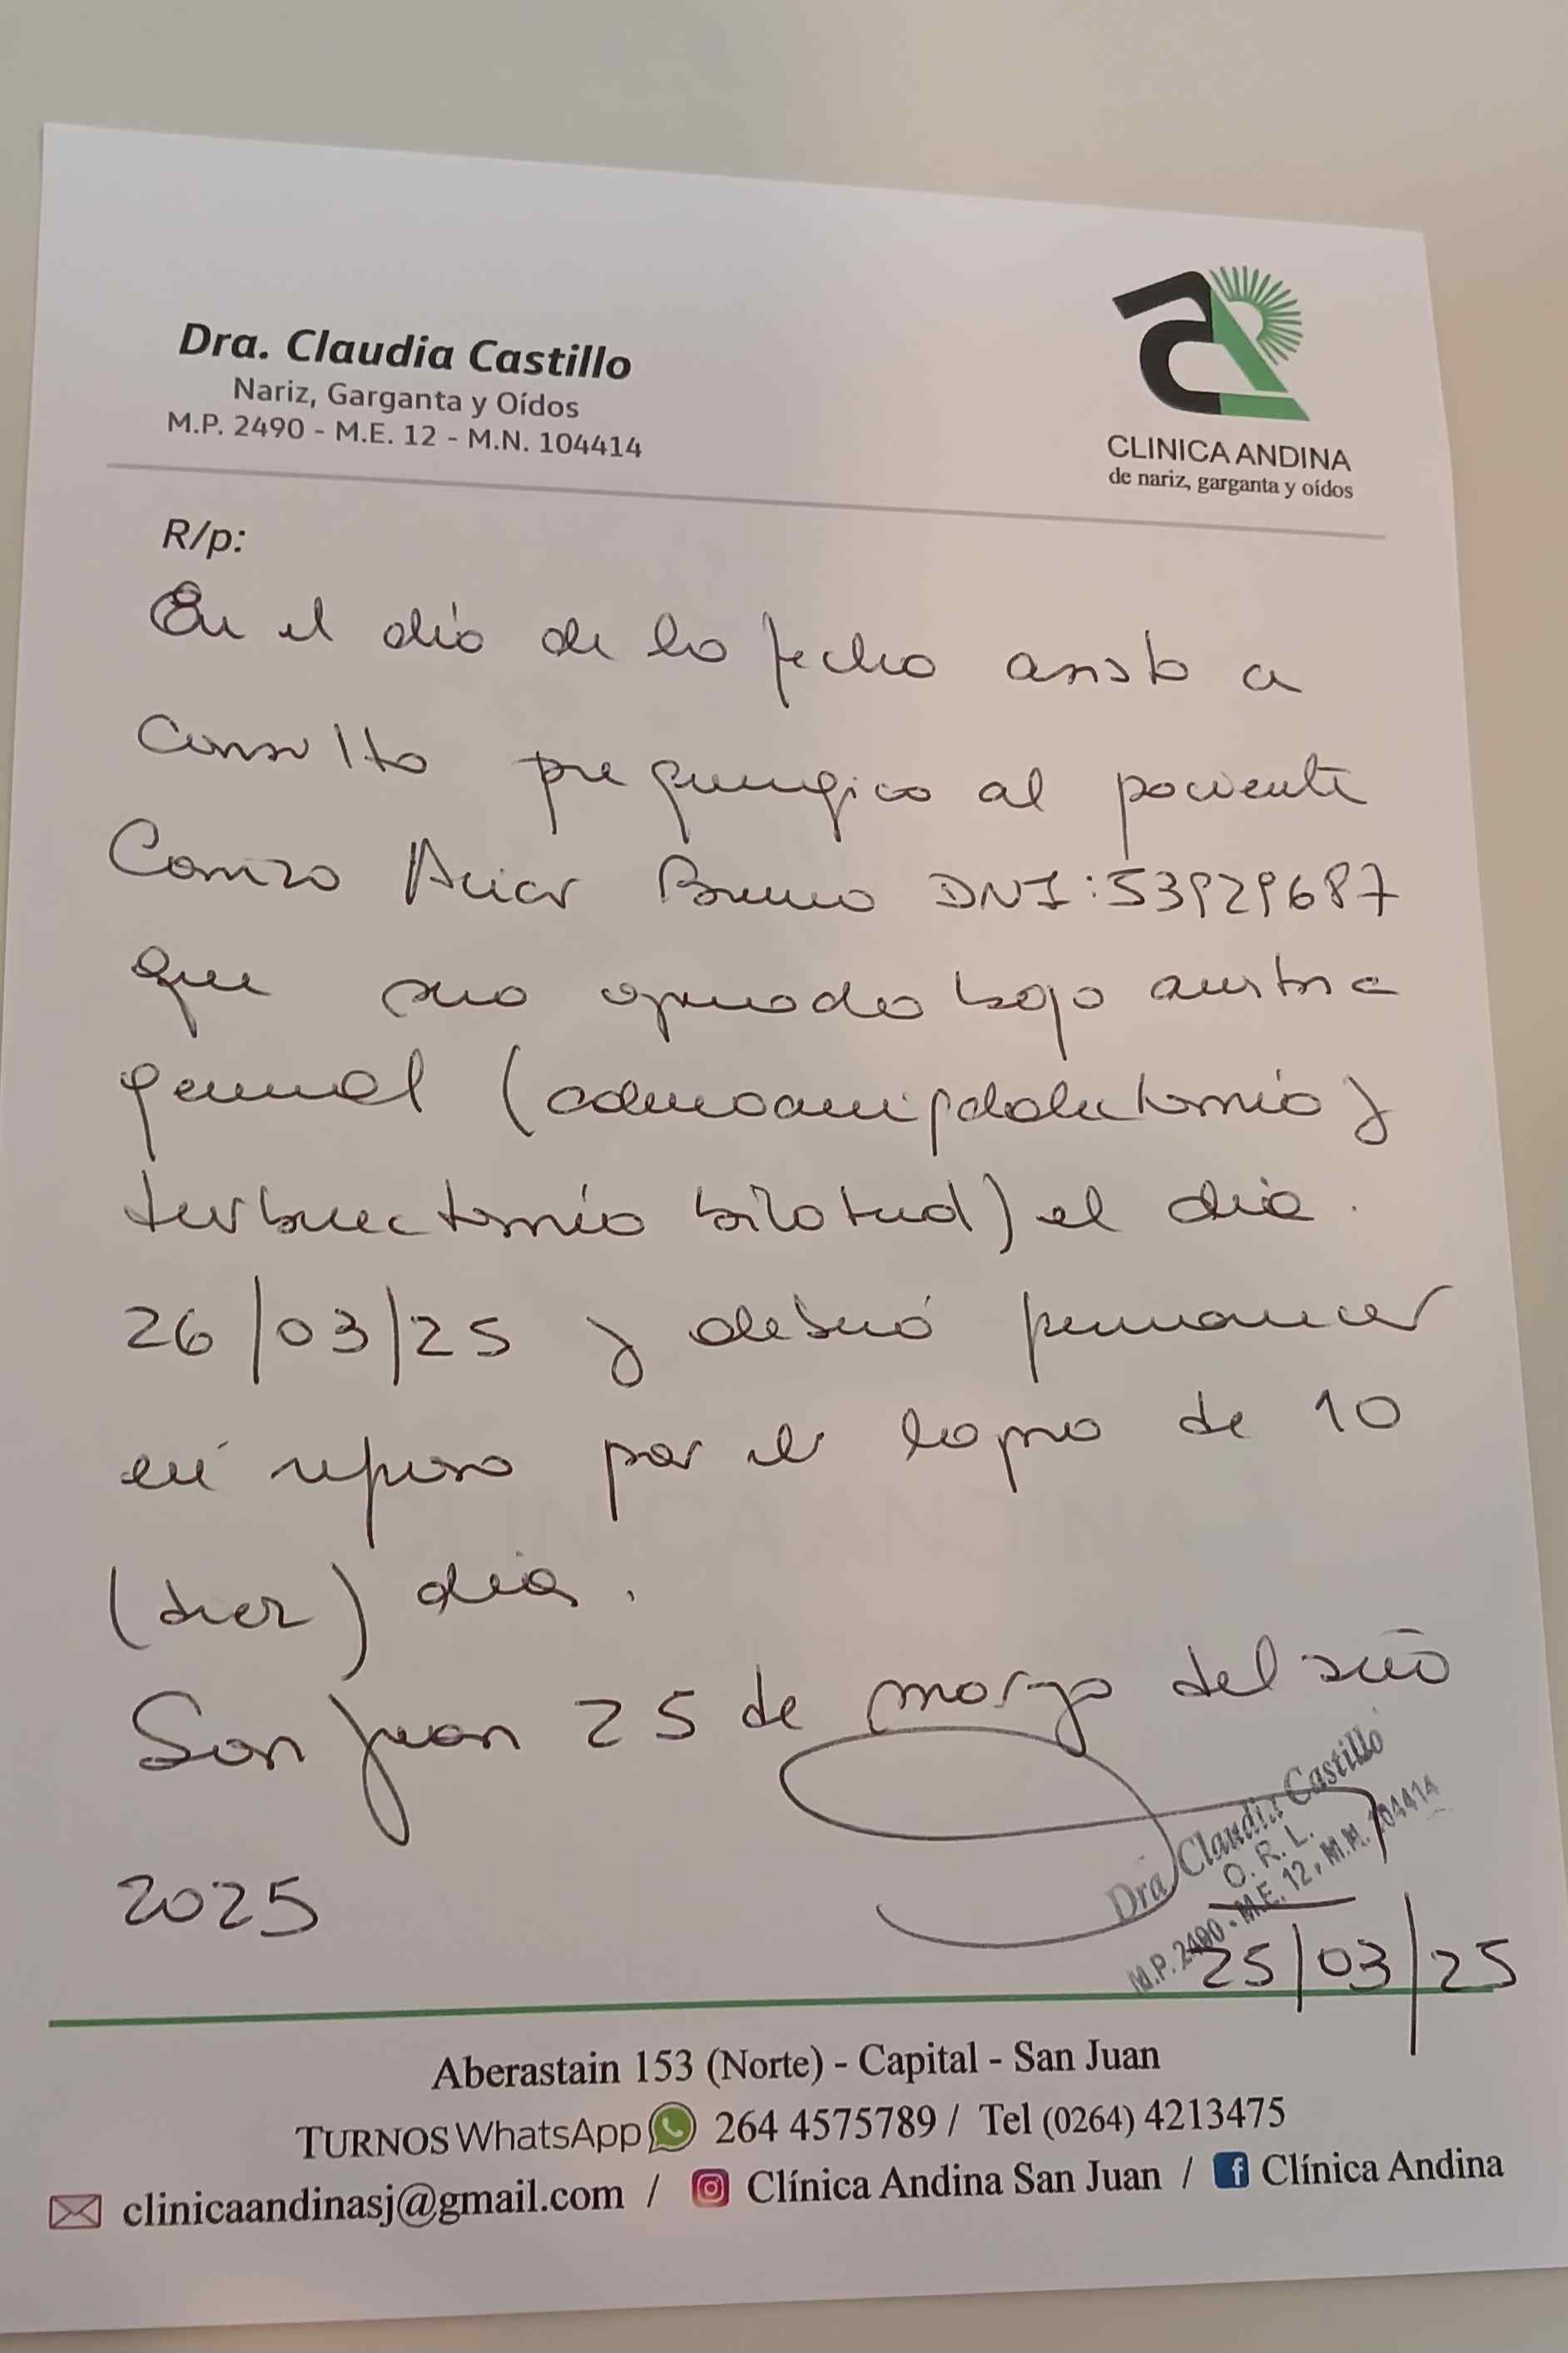 Dra. Claudia Castillo
Nariz, Garganta y Oídos
M.P. 2490 - M.E. 12 - M.N. 104414
CLINICA ANDINA
de nariz, garganta y oídos
R/p:
En el día de la fecha asisto a
consulta prequirúrgica al paciente
Bruno DNI: 53929687
que sera operado bajo anestesia
general (adenoamigdalectomía y
turbinectomía bilateral) el día
26/03/25 y deberá permanecer
en reposo por el lapso de 10
(diez) días.
San Juan 25 de marzo del año
2025
Dra. Claudia Castillo
O. R. L.
M.P. 2490 - M.E. 12, M.N. 104414
25/03/25
Aberastain 153 (Norte) - Capital - San Juan
TURNOS WhatsApp 264 4575789 / Tel (0264) 4213475
clinicaandinasj@gmail.com / Clínica Andina San Juan / Clínica Andina